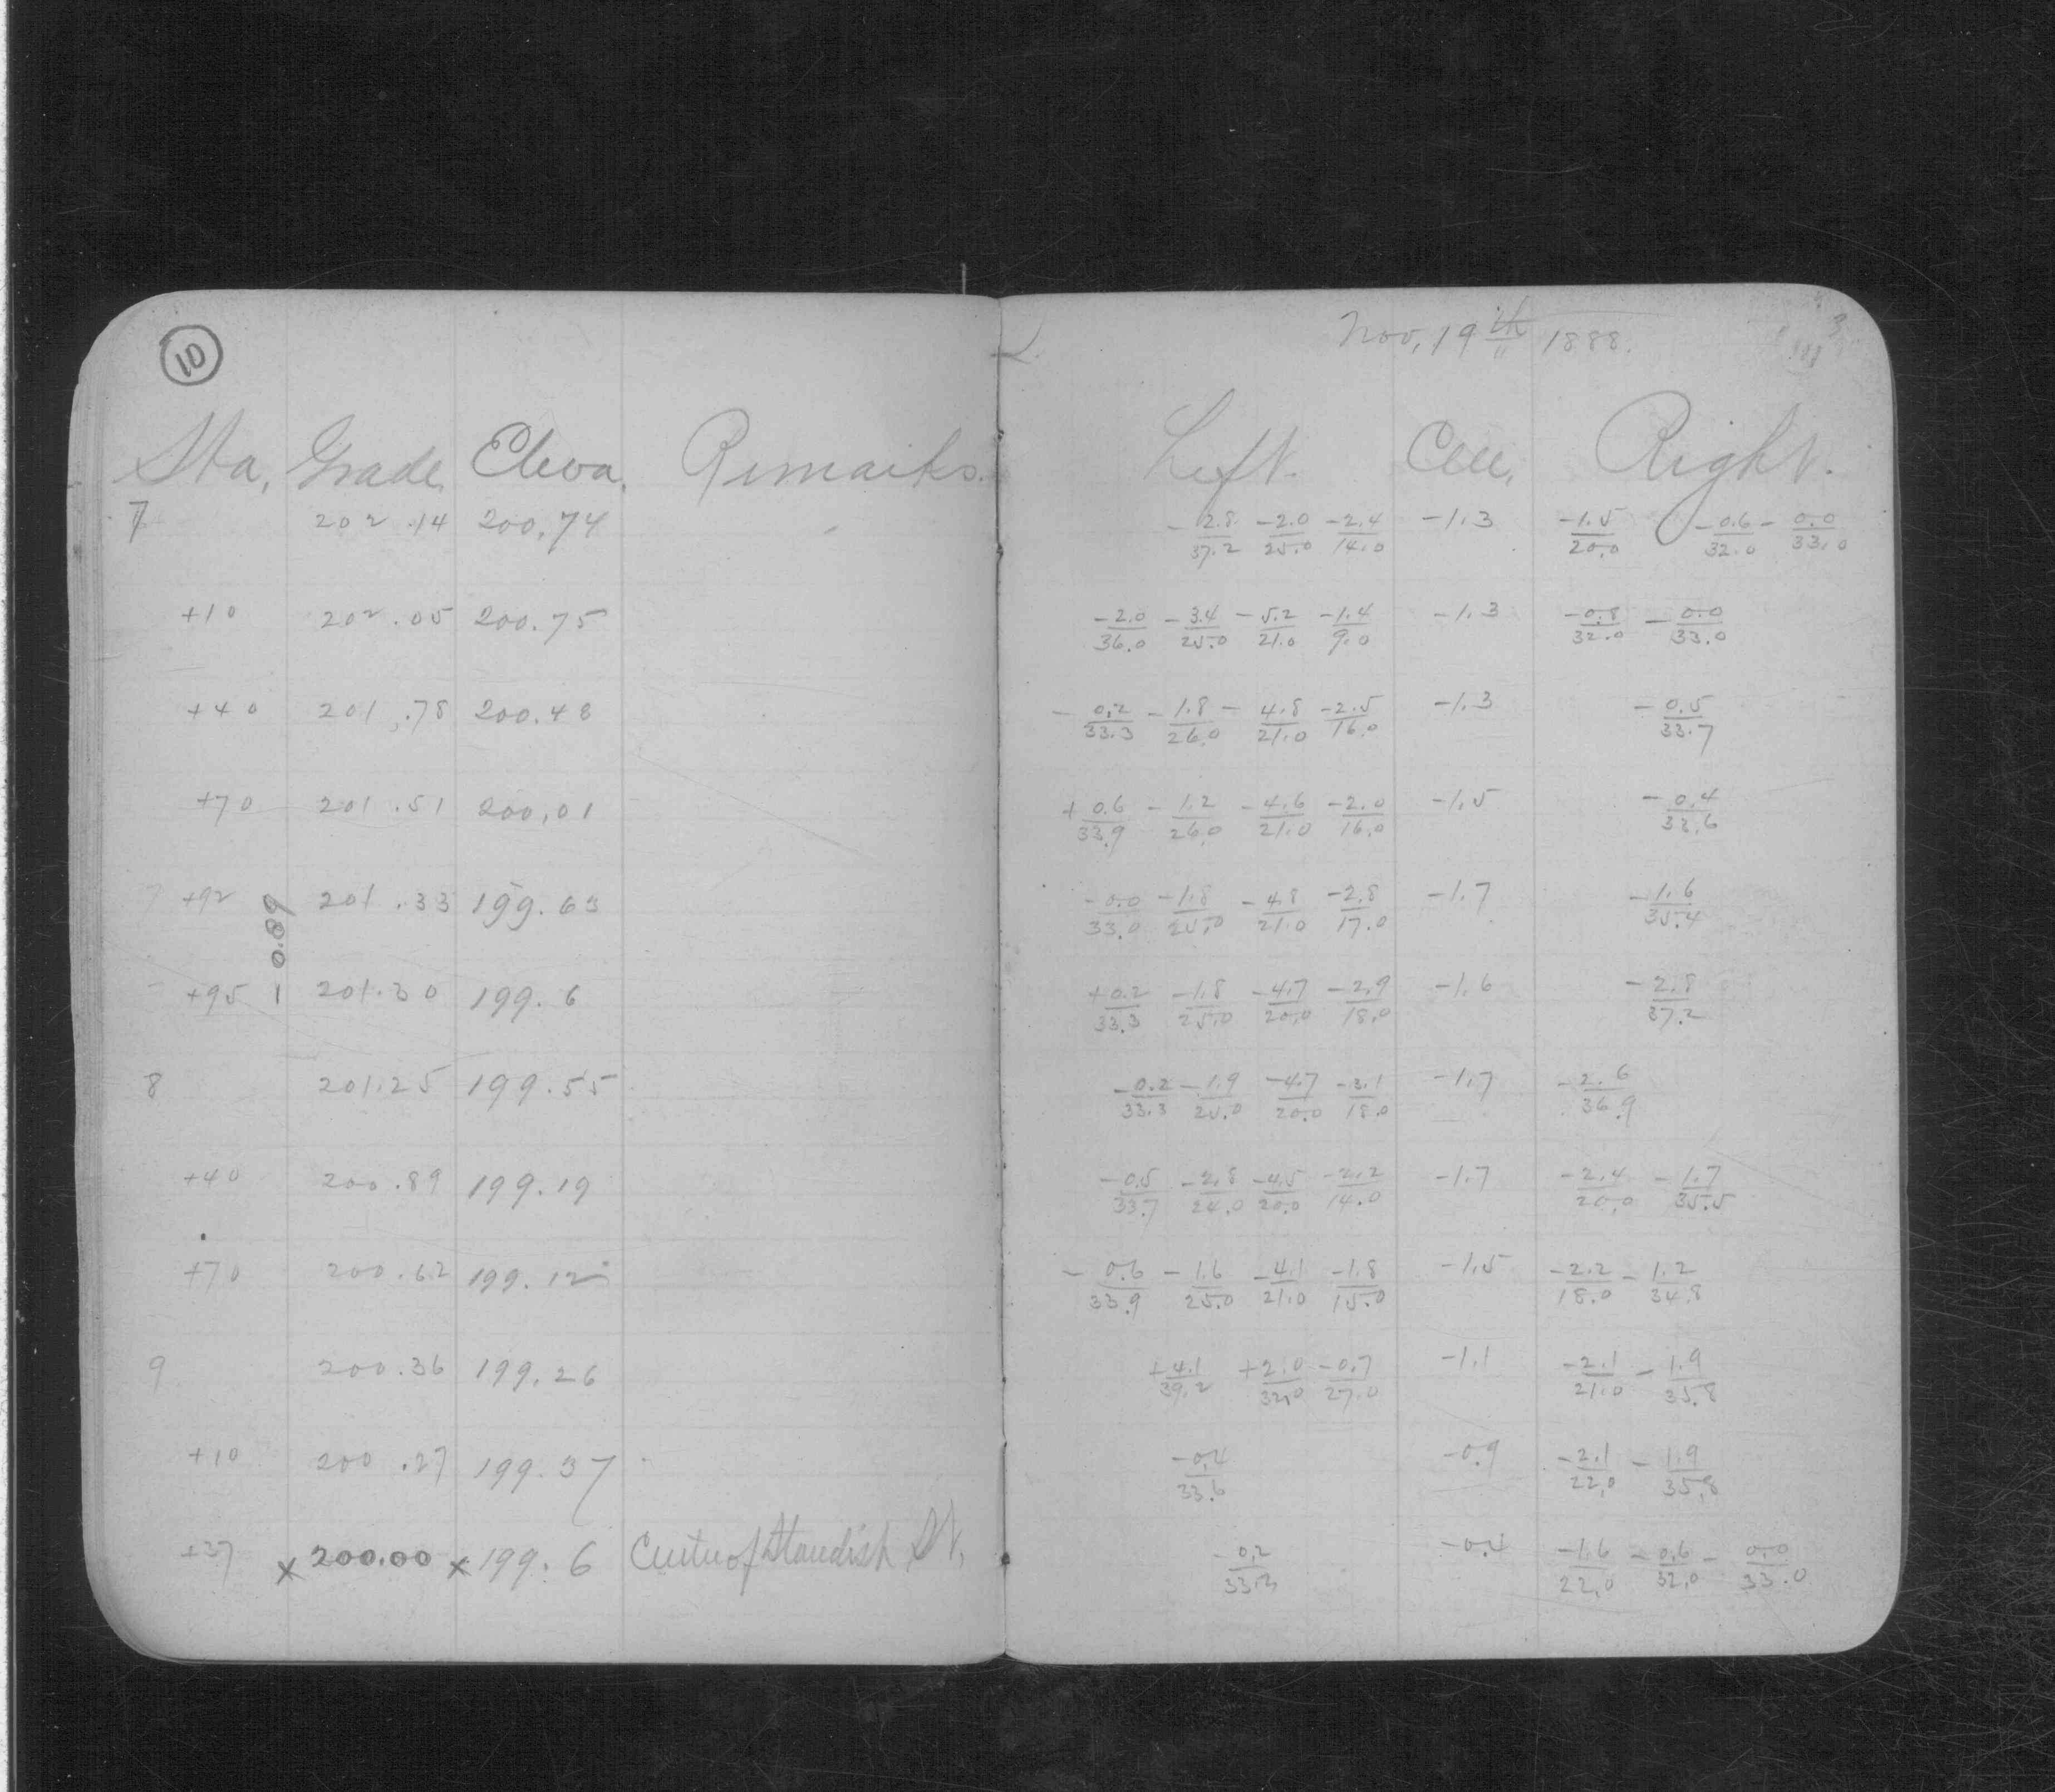 10
Nov, 19th 1888.
Sta, Grade Eleva. Remarks.
Left. Cen, Right.
7 202.14 200.74
-2.8/37.2 -2.0/25.0 -2.4/14.0 -1.3 -1.5/20.0 -0.6/32.0 -0.0/33.0
+10 202.05 200.75
-2.0/36.0 -3.4/25.0 -5.2/21.0 -1.4/9.0 -1.3 -0.8/32.0 -0.0/33.0
+40 201.78 200.48
-0.2/33.3 -1.8/26.0 -4.8/21.0 -2.5/16.0 -1.3 -0.5/33.7
+70 201.51 200.01
+0.6/33.9 -1.2/26.0 -4.6/21.0 -2.0/16.0 -1.5 -0.4/33.6
7 +92 201.33 199.63
0.89
-0.0/33.0 -1.8/25.0 -4.8/21.0 -2.8/17.0 -1.7 -1.6/35.4
+95 201.30 199.6
+0.2/33.3 -1.8/25.0 -4.7/20.0 -2.9/18.0 -1.6 -2.8/37.2
8 201.25 199.55
-0.2/33.3 -1.9/25.0 -4.7/20.0 -3.1/18.0 -1.7 -2.6/36.9
+40 200.89 199.19
-0.5/33.7 -2.8/24.0 -4.5/20.0 -2.2/14.0 -1.7 -2.4/20.0 -1.7/35.5
+70 200.62 199.12
-0.6/33.9 -1.6/25.0 -4.1/21.0 -1.8/15.0 -1.5 -2.2/18.0 -1.2/34.8
9 200.36 199.26
+4.1/39.2 +2.0/32.0 -0.7/27.0 -1.1 -2.1/21.0 -1.9/35.8
+10 200.27 199.37
-0.4/33.6 -0.9 -2.1/22.0 -1.9/35.8
+37 x 200.00 x 199.6 Center of Standish St,
-0.2/33.3 -0.4 -1.6/22.0 -0.6/32.0 -0.0/33.0